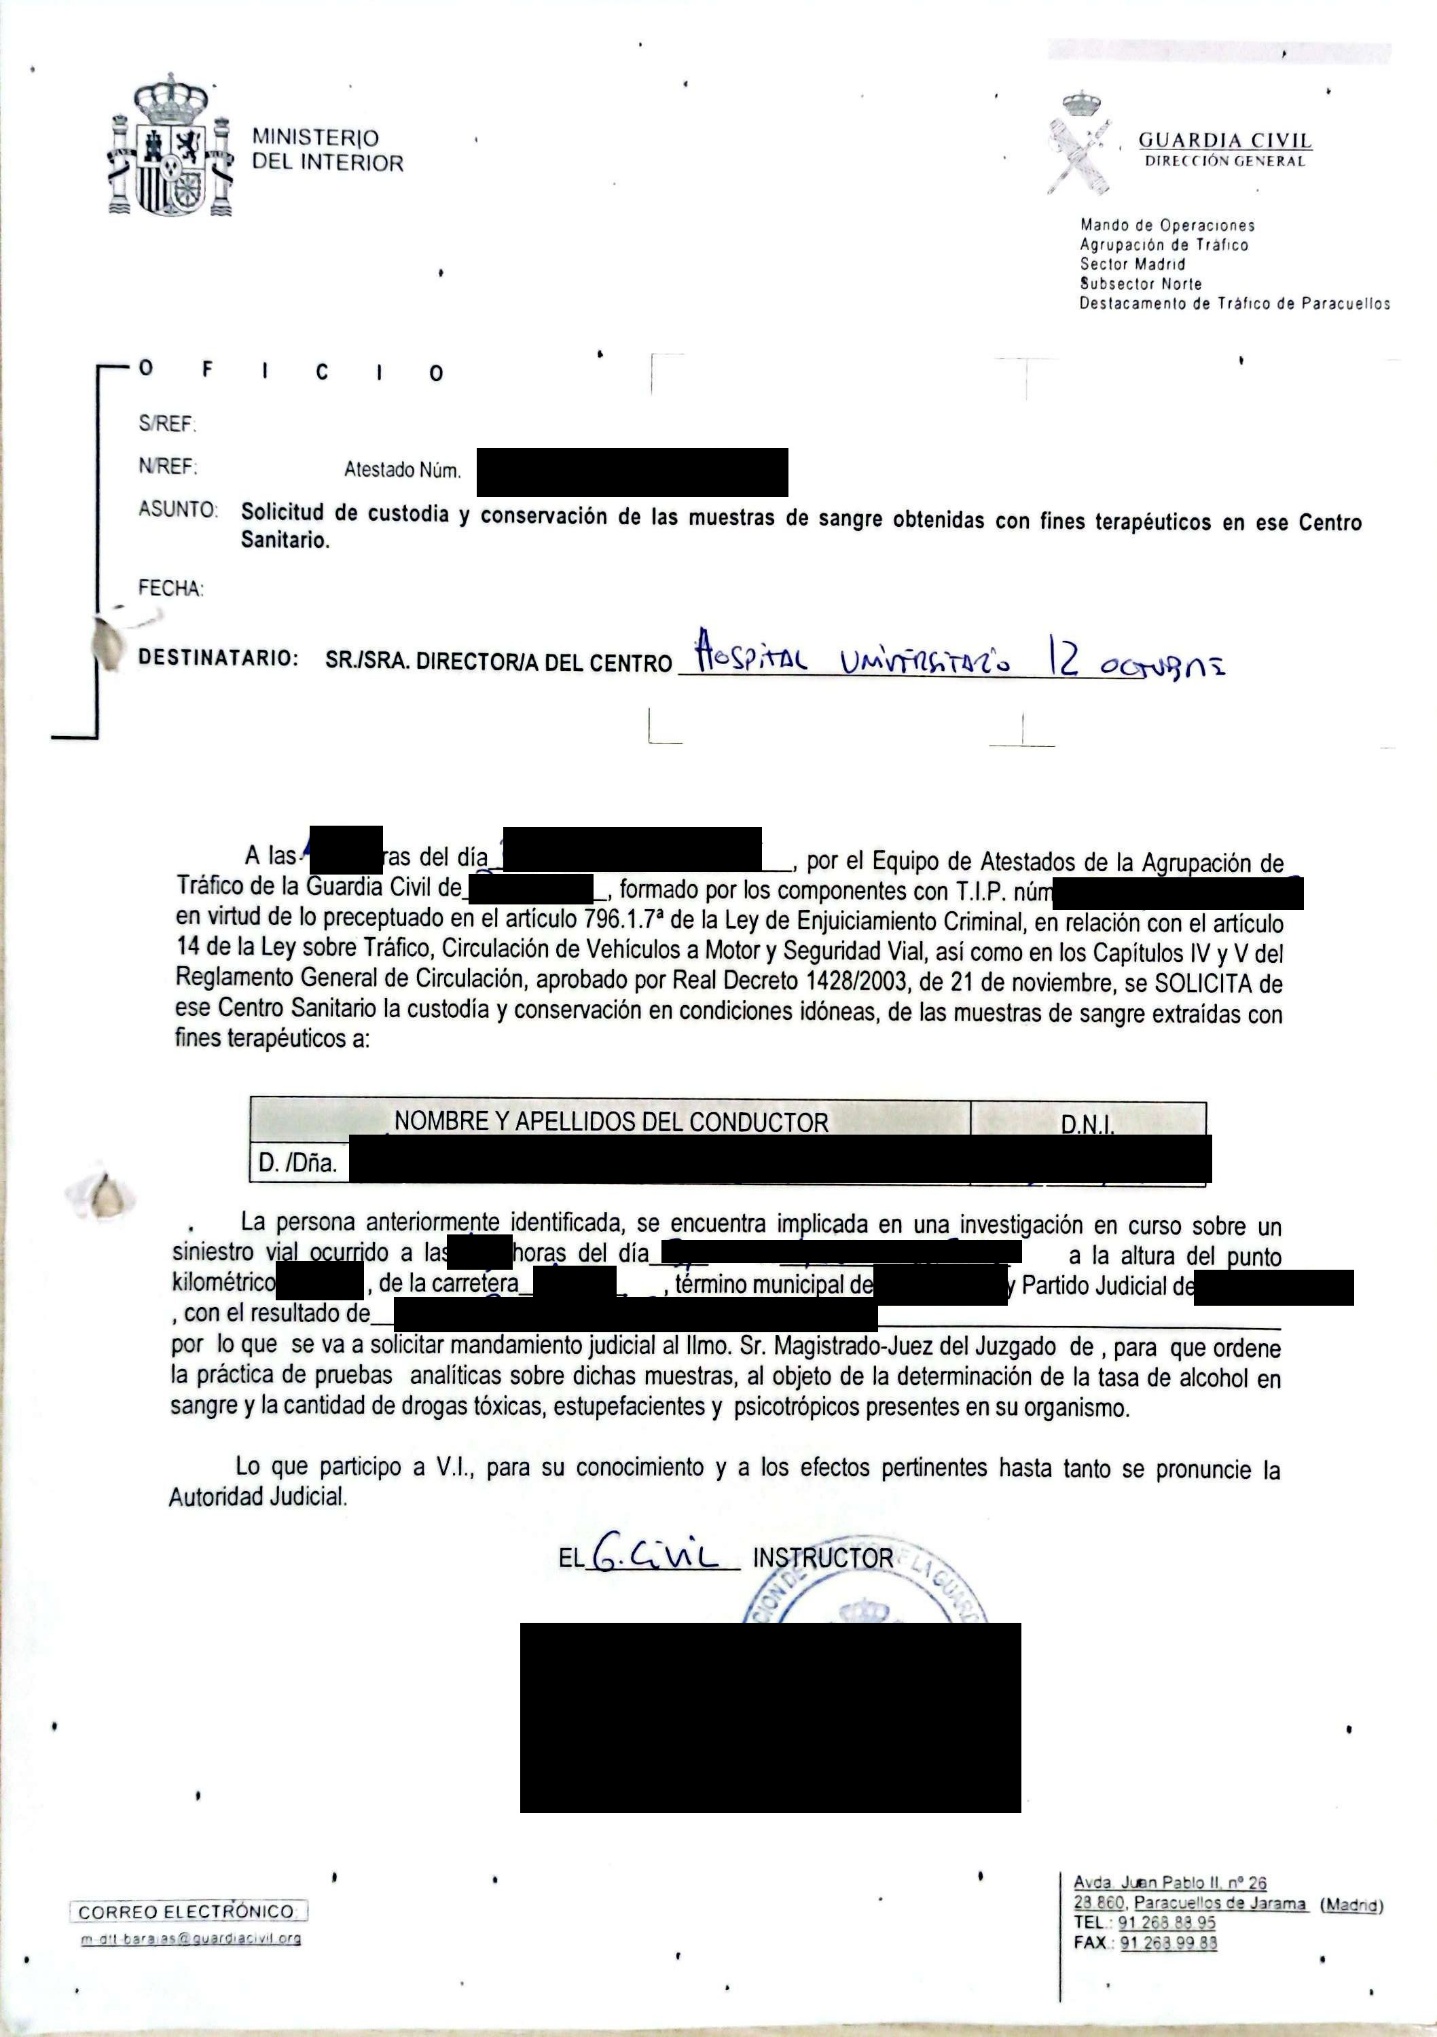 MINISTERIO
DEL INTERIOR
GUARDIA CIVIL
DIRECCIÓN GENERAL
Mando de Operaciones
Agrupación de Tráfico
Sector Madrid
Subsector Norte
Destacamento de Tráfico de Paracuellos
O F I C I O
S/REF:
N/REF: Atestado Núm.
ASUNTO: Solicitud de custodia y conservación de las muestras de sangre obtenidas con fines terapéuticos en ese Centro
Sanitario.
FECHA:
DESTINATARIO: SR./SRA. DIRECTOR/A DEL CENTRO HOSPITAL UNIVERSITARIO 12 OCTUBRE
A las ras del día , por el Equipo de Atestados de la Agrupación de
Tráfico de la Guardia Civil de , formado por los componentes con T.I.P. núm
en virtud de lo preceptuado en el artículo 796.1.7ª de la Ley de Enjuiciamiento Criminal, en relación con el artículo
14 de la Ley sobre Tráfico, Circulación de Vehículos a Motor y Seguridad Vial, así como en los Capítulos IV y V del
Reglamento General de Circulación, aprobado por Real Decreto 1428/2003, de 21 de noviembre, se SOLICITA de
ese Centro Sanitario la custodía y conservación en condiciones idóneas, de las muestras de sangre extraídas con
fines terapéuticos a:
NOMBRE Y APELLIDOS DEL CONDUCTOR D.N.I.
D. /Dña.
La persona anteriormente identificada, se encuentra implicada en una investigación en curso sobre un
siniestro vial ocurrido a las horas del día a la altura del punto
kilométrico , de la carretera , término municipal de y Partido Judicial de
, con el resultado de
por lo que se va a solicitar mandamiento judicial al Ilmo. Sr. Magistrado-Juez del Juzgado de , para que ordene
la práctica de pruebas analíticas sobre dichas muestras, al objeto de la determinación de la tasa de alcohol en
sangre y la cantidad de drogas tóxicas, estupefacientes y psicotrópicos presentes en su organismo.
Lo que participo a V.I., para su conocimiento y a los efectos pertinentes hasta tanto se pronuncie la
Autoridad Judicial.
EL G. CIVIL INSTRUCTOR
CORREO ELECTRÓNICO
m-dtt-barajas@guardiacivil.org
Avda. Juan Pablo II, nº 26
28.860, Paracuellos de Jarama (Madrid)
TEL.: 91 268 88 95
FAX.: 91 268 99 88